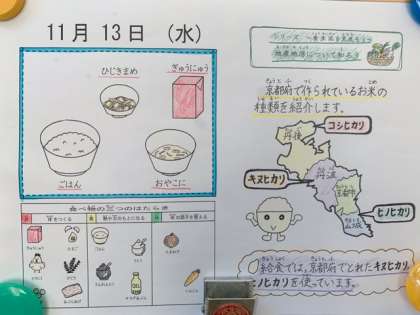 11月 13日 (水)
ひじきまめ
ぎゅうにゅう
ごはん
おやこに
シリーズ ～食生活を見直そう～
地産地消について知ろう
京都府で作られているお米の
種類を紹介します。
コシヒカリ
丹後
キヌヒカリ
丹波
京都市
ヒノヒカリ
山城
食べ物の三つのはたらき
給食では、京都府でとれたキヌヒカリ、
ヒノヒカリを使っています。